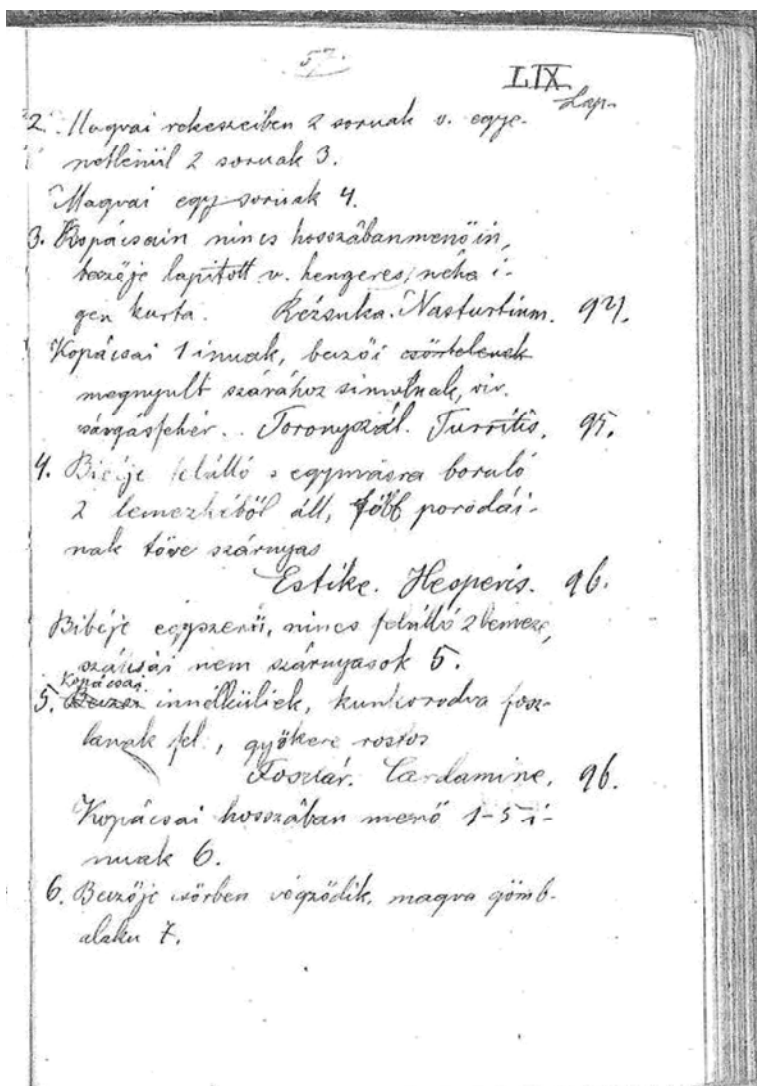 57.
LIX
Lap.
2. Magvai rekeszeiben 2 soruak v. egye-
netlenül 2 soruak 3.
Magvai egy soruak 4.
3. Kopácsain nincs hosszábanmenő in,
beczője lapított v. hengeres, néha i-
gen kurta. Kézsuka. Nasturtium. 94.
Kopácsai 1 inuak, beczői csőrtelenek
megnyult szárához simulnak, vir.
sárgásfehér.. Toronyszál. Turritis. 95.
4. Bibéje felálló s egymásra boruló
2 lemezkéből áll, főbb porodái-
nak töve szárnyas
Estike. Hesperis. 96.
Bibéje egyszerü, nincs felálló 2 lemeze,
szálcsái nem szárnyasok 5.
Kopácsai
5. innélküliek, kunkorodva fosz-
lanak fel, gyökere rostos
Foszlár. Cardamine. 96.
Kopácsai hosszában menő 1-5 i-
nuak 6.
6. Beczője csőrben végződik, magva gömb-
alaku 7.